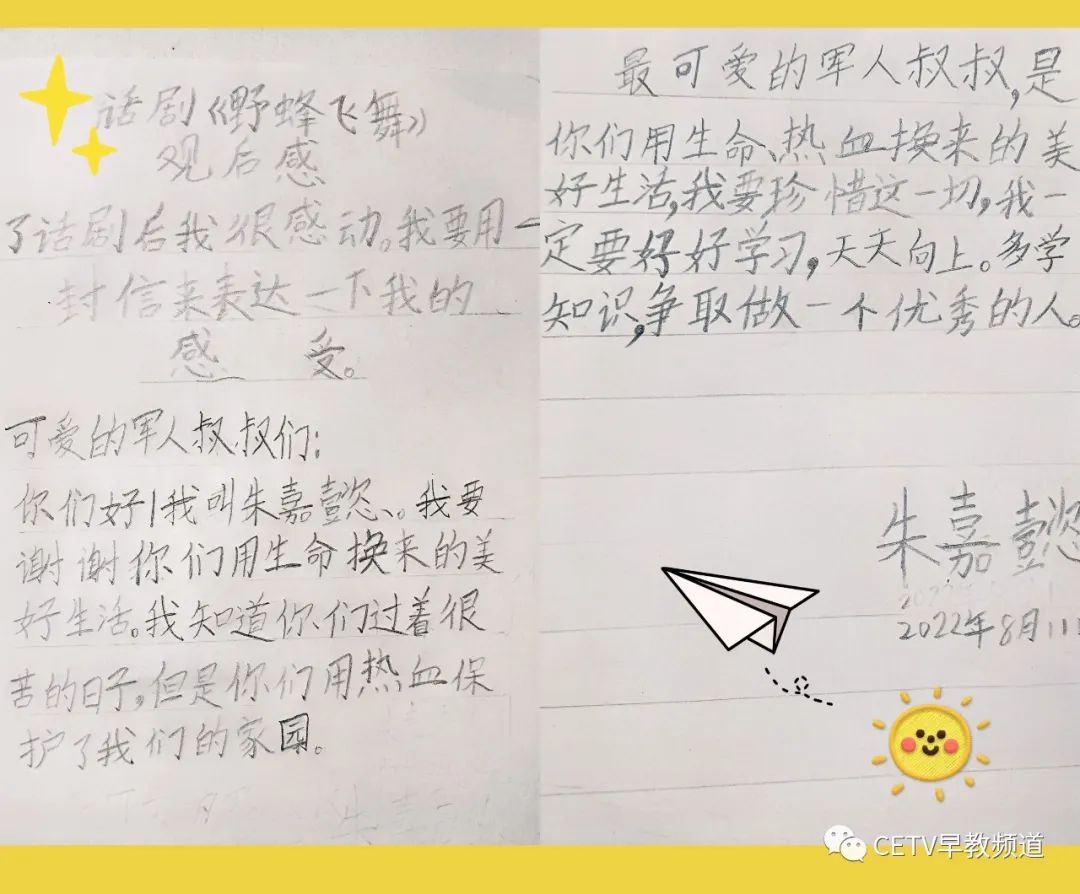 话剧《野蜂飞舞》
观后感
了话剧后我很感动。我要用一
封信来表达一下我的
感 受。
可爱的军人叔叔们:
你们好!我叫朱嘉懿、。我要
谢谢你们用生命换来的美
好生活。我知道你们过着很
苦的日子,但是你们用热血保
护了我们的家园。
最可爱的军人叔叔,是
你们用生命、热血换来的美
好生活,我要珍惜这一切,我一
定要好好学习,天天向上。多学
知识,争取做一个优秀的人。
朱嘉懿
2022年8月11日
CETV早教频道